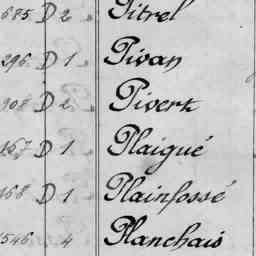 685 D 2 Pitrel
296 D 1 Pivan
908 D 2 Pivert
167 D 1 Plaigué
168 D 1 Plainfossé
1546 4 Planchais